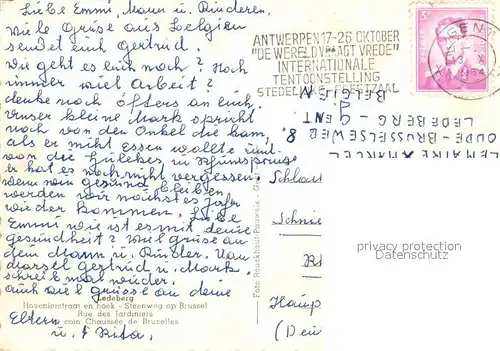 Liebe Emmi, Mann u. Kinderen.
Viele Grüse aus Belgien
sendet euch Gertrud.
Wie geht es euch noch? Noch
immer viel Arbeit?
denke noch öfters an euch.
Unser kleine Mark spricht
noch von der Onkel die kam,
als er nicht Essen wollte und
von die
er hat es noch nicht vergessen.
wenn wir gesund bleiben
werden wir nächstes Jahr
wieder kommen. Liebe
Emmi wie ist es mit deine
gesundheit? Viel grüse an
dein Mann u. Kinder. Van
Marsel gertrud u. Mark.
schreib mal wieder.
auch viele grüsse an deine
Eltern
u. Rita.
Ledeberg
Hovenierstraat en hoek - Steenweg op Brussel
Rue des Jardiniers
coin Chaussée de Bruxelles
Foto Rouckhout-Pauwels - Gent
ANTWERPEN 17-26 OKTOBER
"DE WERELD VRAAGT VREDE"
INTERNATIONALE
TENTOONSTELLING
STEDELIJKE FEESTZAAL
GENT
3F
LEMAIRE MARCEL
OUDE-BRUSSELSEWEG 8.
LEDEBERG
GENT
BELGIEN
Schlau
Schnie
Haup
(Deu
privacy protection
Datenschutz